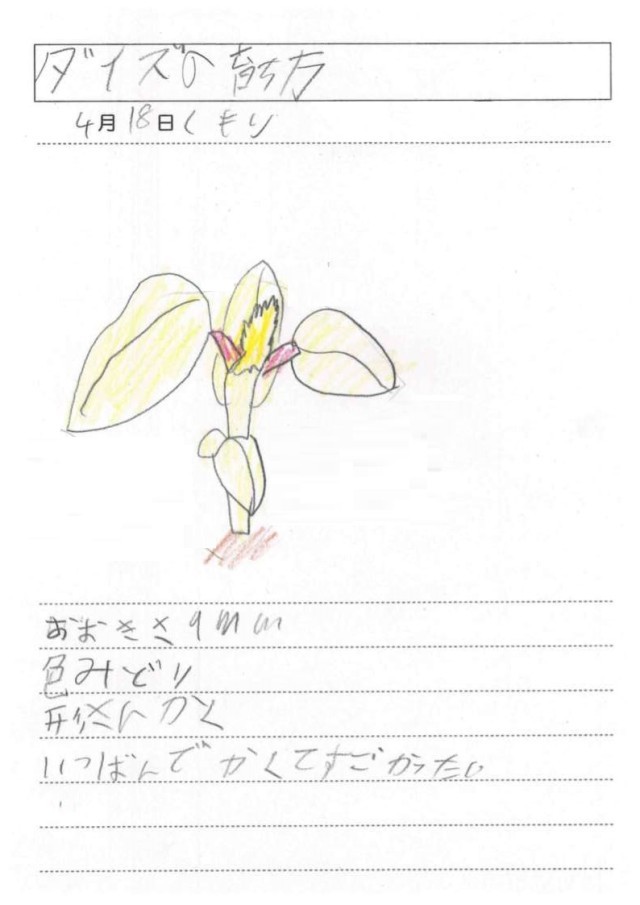 ダイズの育ち方
4月18日くもり
おおきさ9mm
色みどり
いつばんでかくてすごかった